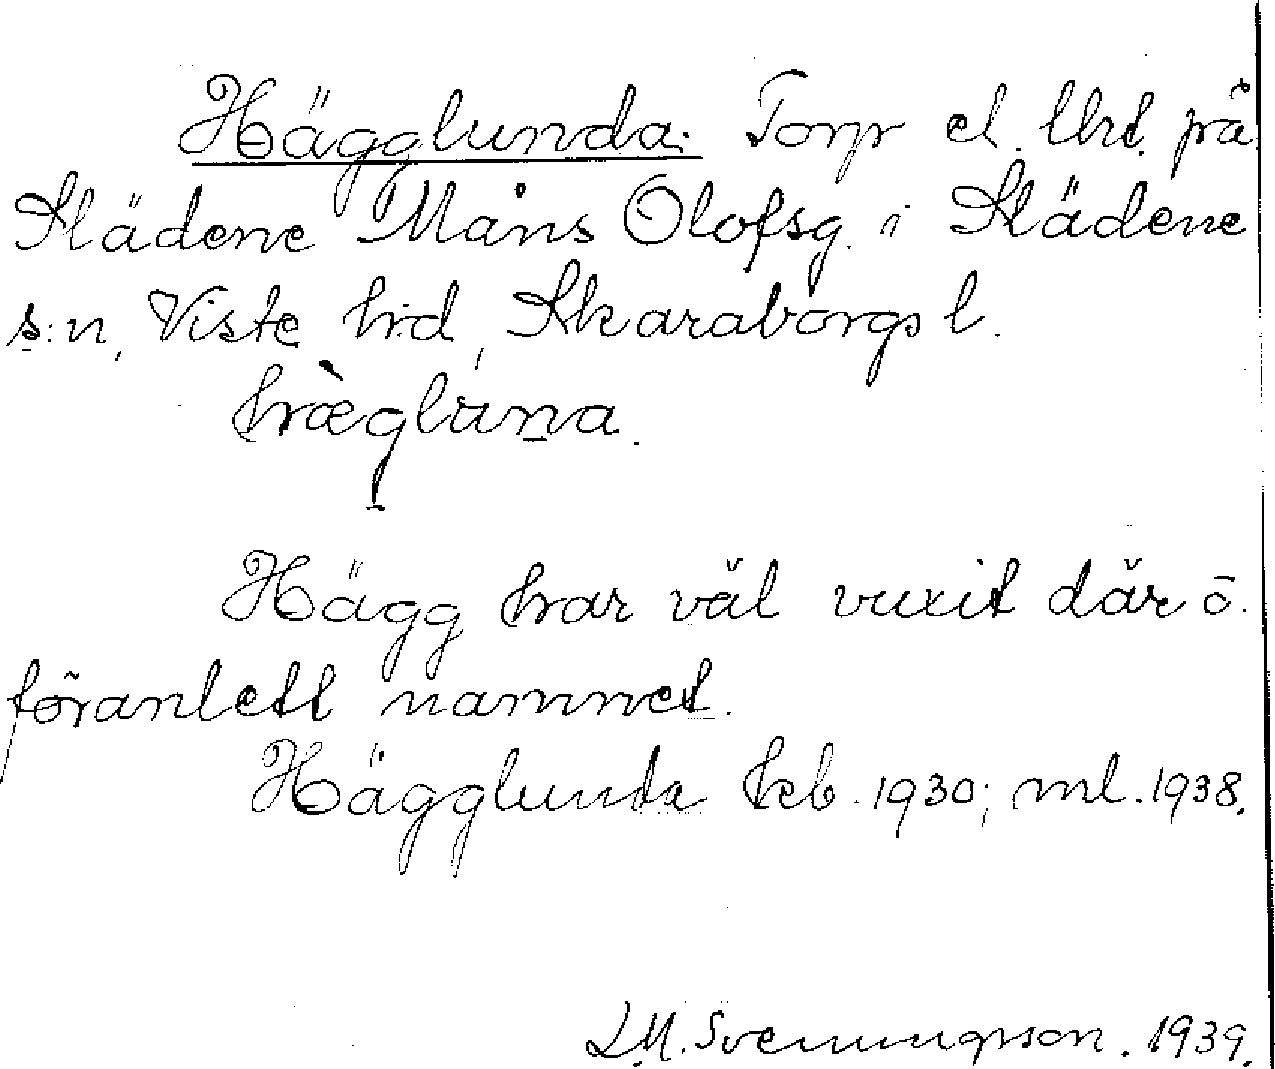 Hägglunda. Torp el. lht. på
Slädene Måns Olofsg. i Slädene
s:n, Viste hd, Skaraborgs l.
hæ̀gluna.
Hägg har väl vuxit där o.
föranlett namnet.
Hägglunda kb. 1930; ml. 1938.
L.M. Svenungsson. 1939.